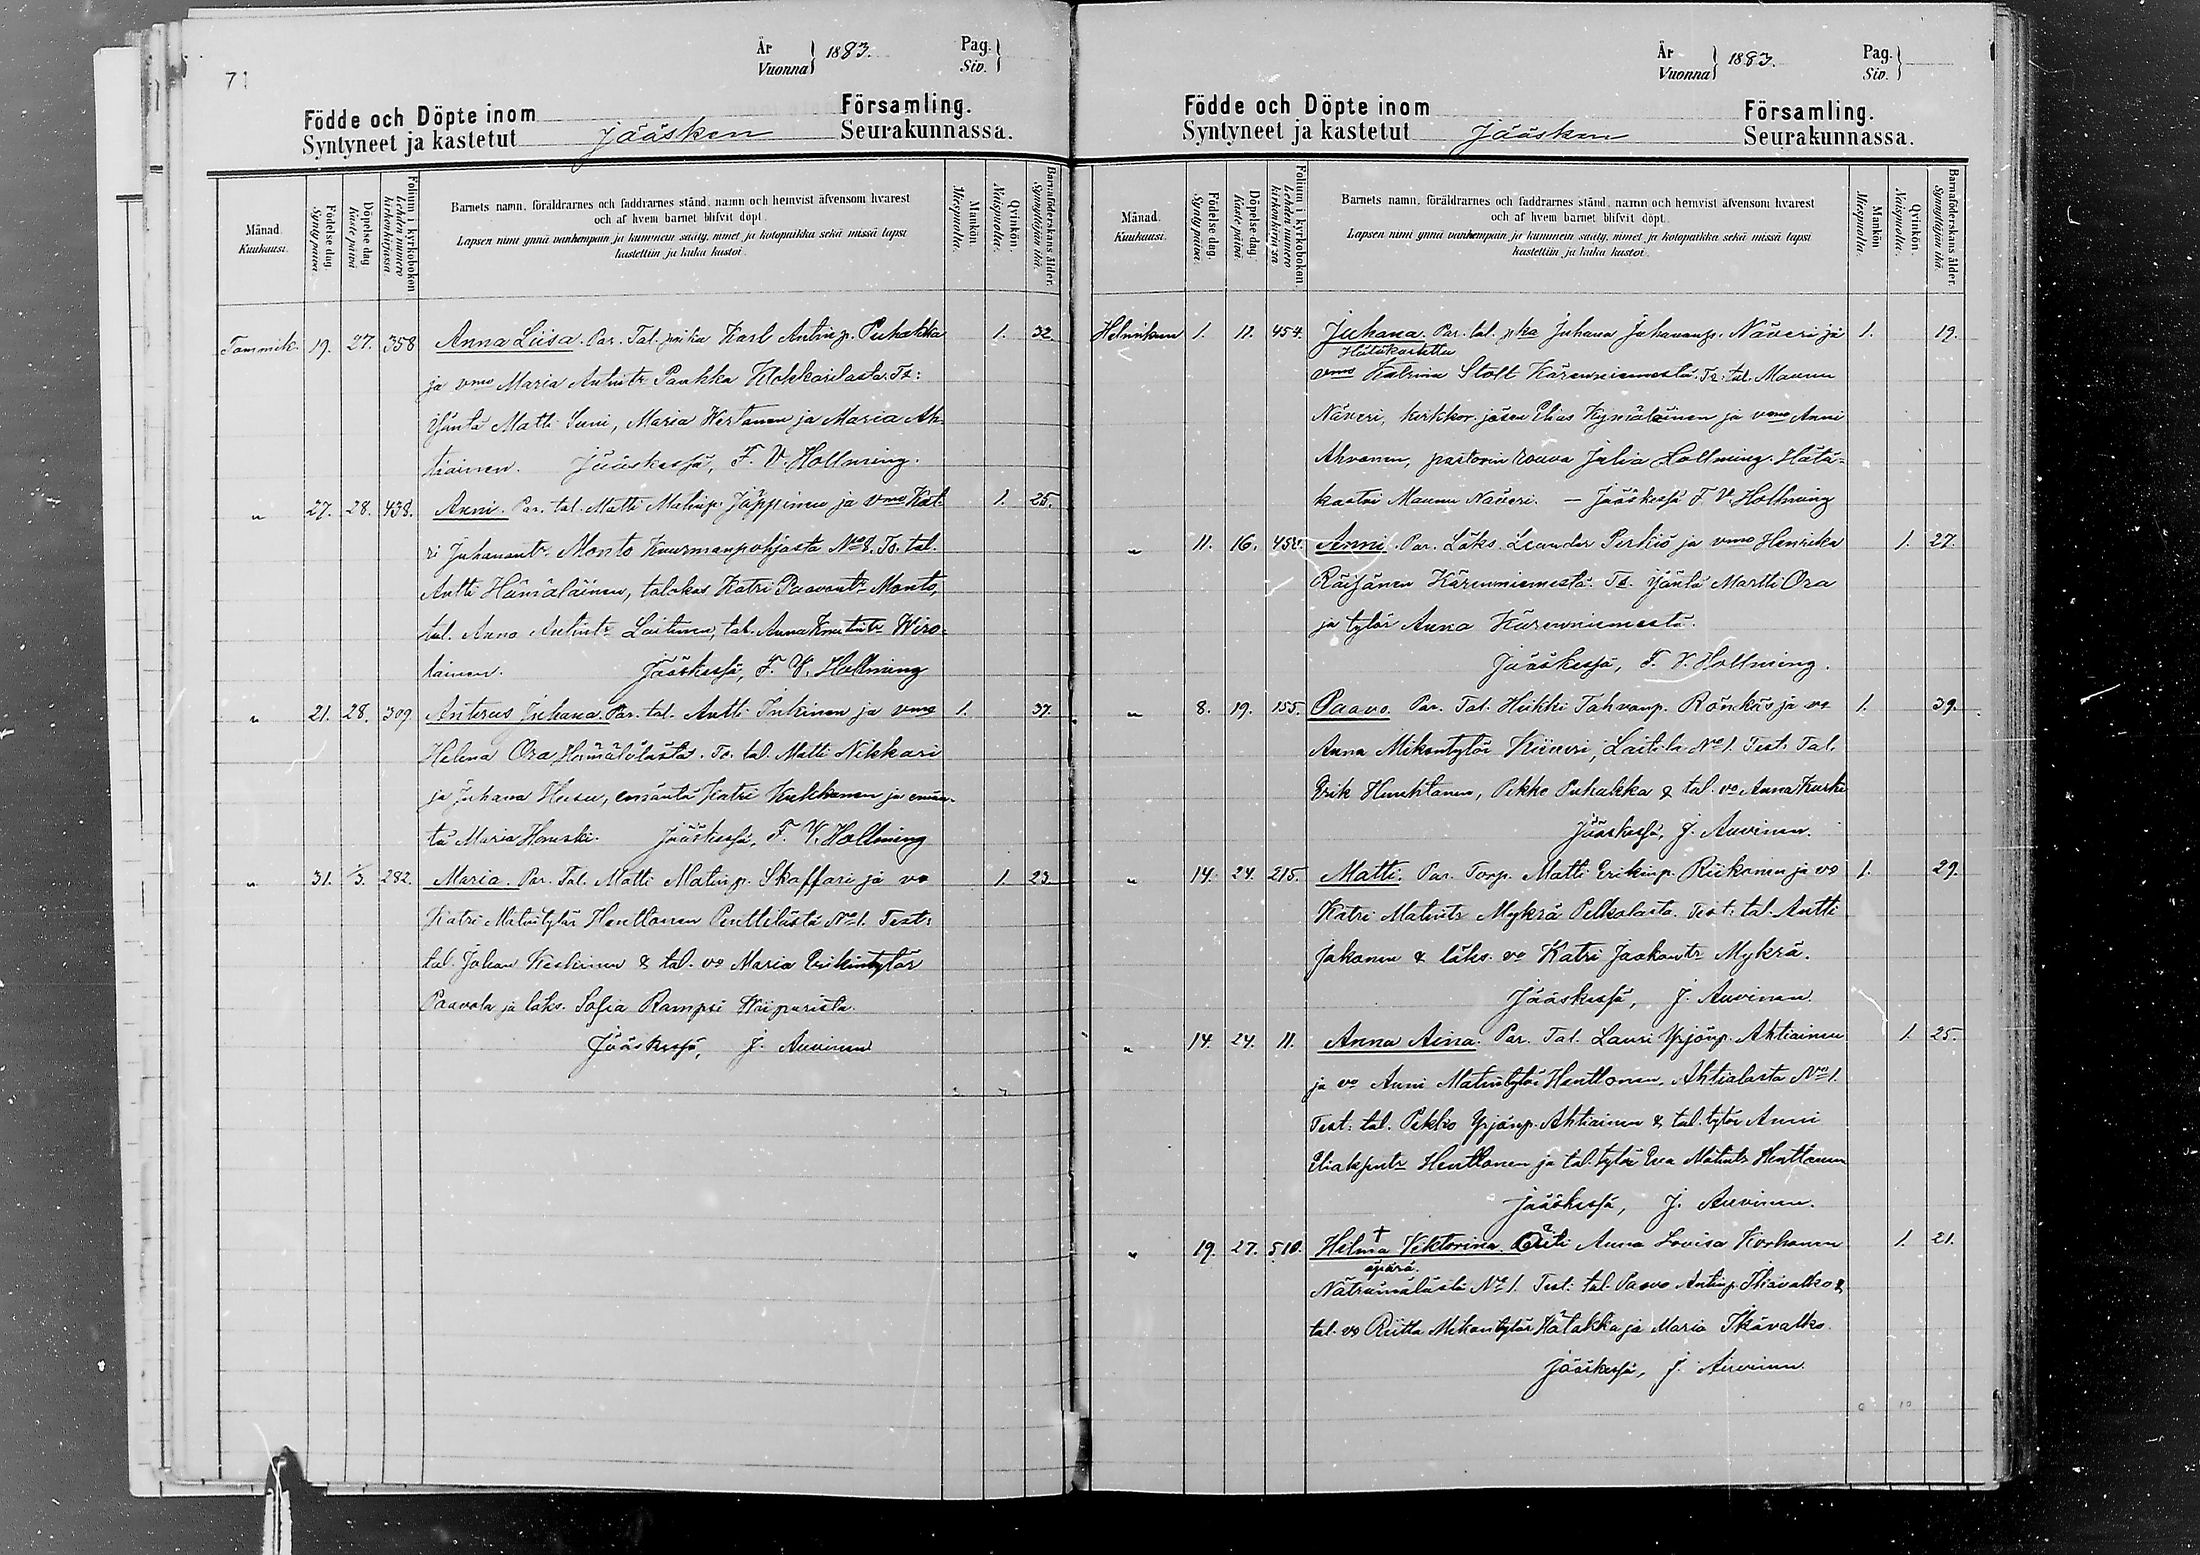 71
År
Vuonna } 1883.
Pag.
Siv. }
Födde och Döpte inom
Syntyneet ja kastetut Jääsken
Församling.
Seurakunnassa.
Månad.
Kuukausi.
Födelse dag.
Synty päivä.
Döpelse dag.
Kaste päivä.
Folium i kyrkoboken
Lehden numero
kirkonkirjassa
Barnets namn, föräldrarnes och faddrarnes stånd, namn och hemvist äfvensom hvarest
och af hvem barnet blifvit döpt.
Lapsen nimi ynnä vanhempain ja kummein sääty, nimet ja kotopaikka sekä missä lapsi
kastettiin ja kuka kastoi.
Mankön.
Miespuolta.
Qvinkön.
Naispuolta.
Barnaföderskans ålder.
Synnyttäjän ikä.
Tammik. 19. 27. 358 Anna Liisa. Par. Tal. Karl Antinp. Puhakka 1. 32.
ja vmo Maria Antintr Paukka Kokkosilasta. To:
Yjäntä Matti Suni, Maria Wertanen ja Maria Ah-
tiainen. Jääskessä, F. V. Hollming.
" 27. 28. 438. Anni. Par. tal. Matti Matinp. Jäppinen ja vmo Kat- 1. 25.
ri Juhanantr Monto Kuurmanpohjasta No 8. To. tal.
Antti Hämäläinen, tal. Katri Paavontr Monto,
tal. Anna Antintr Laitinen, tal. Anna Wiro-
lainen. Jääskessä, F. V. Hollming
" 21. 28. 309 Anterus Juhana. Par. tal. Antti Inkinen ja vmo 1. 37.
Helena Ora, Hämälästä. To. tal. Matti Nikkari
ja Juhana Husu, emäntä Katri Kukkonen ja emän-
tä Maria Houski. Jääskessä, F. V. Hollming
" 31. 1/3. 282. Maria. Par. Tal. Matti Matinp. Skaffari ja vo 1. 23.
Katri Matintytär Henttonen Penttilästä No 1. Test:
tal. Johan Keskinen & tal. vo Maria Erikintytär
Paavola ja läks. Sofia Rampsi Wiipurista.
Jääskessä, J. Auvinen
År
Vuonna } 1883.
Pag.
Siv. }
Födde och Döpte inom
Syntyneet ja kastetut Jääsken
Församling.
Seurakunnassa.
Månad.
Kuukausi.
Födelse dag.
Synty päivä.
Döpelse dag.
Kaste päivä.
Folium i kyrkoboken.
Lehden numero
kirkonkirjassa
Barnets namn, föräldrarnes och faddrarnes stånd, namn och hemvist äfvensom hvarest
och af hvem barnet blifvit döpt.
Lapsen nimi ynnä vanhempain ja kummein sääty, nimet ja kotopaikka sekä missä lapsi
kastettiin ja kuka kastoi.
Mankön
Miespuolta.
Qvinkön.
Naispuolta.
Barnaföderskans ålder.
Synnyttäjän ikä.
Helmikuun 1. 11. 454. Juhana. Par. tal. pka Juhana Juhananp. Näveri ja 1. 19.
Hätäkastettu
vmo Katrina Stolt Kärenniemestä. To: tal. Maunu
Näveri, kirkkor. jäsen Elias Kymäläinen ja vmo Anni
Ahvonen, pastorin rouva Julia Hollming. Hätä-
kastoi Maunu Näveri. — Jääskessä F. V. Hollming
" 11. 16. 452. Anni. Par. Läks. Leander Perkiö ja vmo Henrika 1. 27.
Räisänen Kärenniemestä. To. Yjäntä Martti Ora
ja tytär Anna Kärenniemestä.
Jääskessä, F. V. Hollming.
" 8. 19. 155. Paavo. Par. Tal. Heikki Tahvanp. Rönkäs ja vo 1. 39.
Anna Mikontytär Kiiveri, Laitila No 1. Test. Tal.
Erik Hunkkanen, Pekko Puhakka & tal. vo Anna Kurki
Jääskessä, J. Auvinen.
" 14. 24. 215. Matti. Par. Torp. Matti Erikinp. Riikonen ja vo 1. 29.
Katri Matintr Mykrä Pelkolasta. Test: tal. Antti
Jakonen & läks. vo Katri Jaakontr Mykrä.
Jääskessä, J. Auvinen.
" 14. 24. 11. Anna Aina. Par. Tal. Lauri Yrjönp. Ahtiainen 1. 25.
ja vo Anni Matintytär Henttonen, Ahtialasta No 1.
Test: tal. Pekko Yrjönp. Ahtiainen & tal. tytär Anni
Henttonen ja tal. tytär Eva Matintr Henttonen
Jääskessä, J. Auvinen.
" 19. 27. 510. Hilma Viktorina. Äiti Anna Lovisa Korhonen 1. 21.
äpärä.
Näträmälästä No 1. Test: tal. Paavo Antinp. Ikävalko &
tal. vo Riitta Mikontytär Hätäkka ja Maria Ikävalko.
Jääskessä, J. Auvinen.